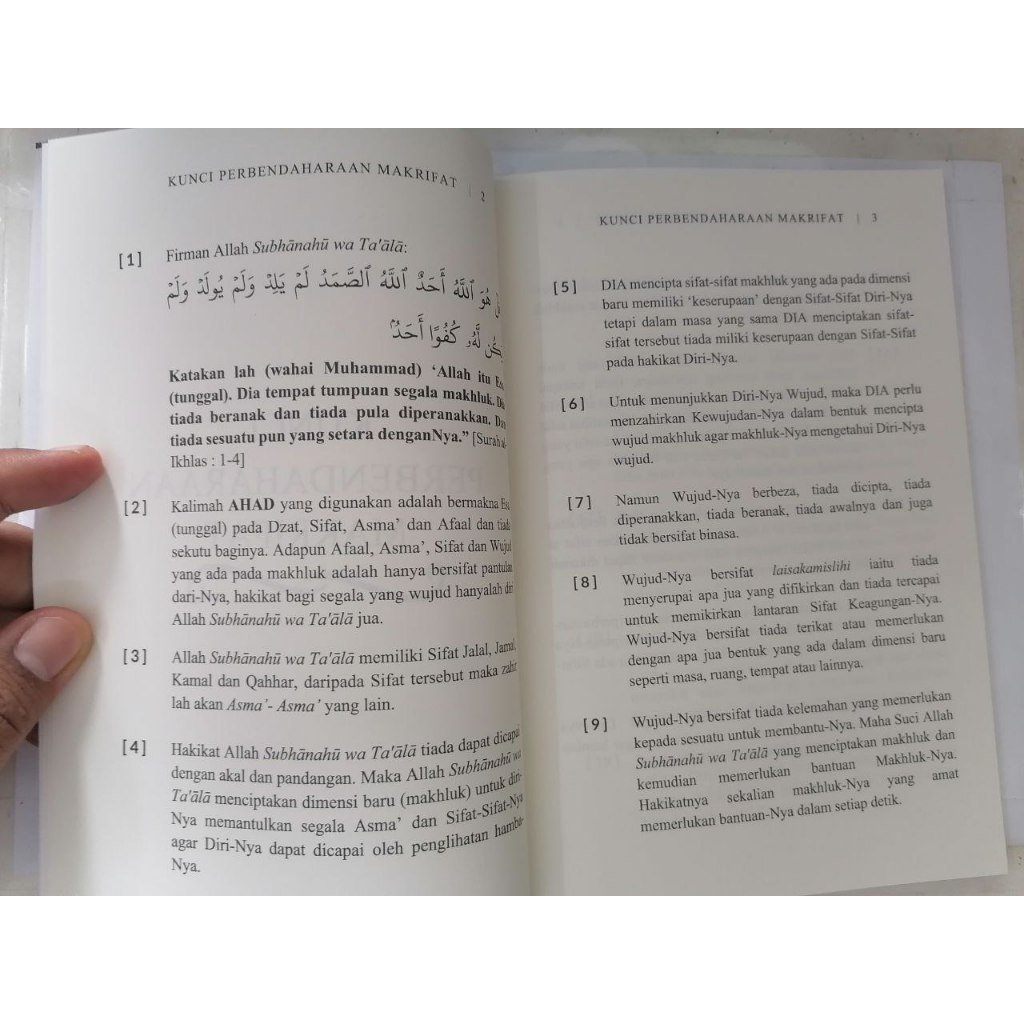 KUNCI PERBENDAHARAAN MAKRIFAT | 2
[1] Firman Allah Subhānahū wa Ta'ālā:
هُوَ ٱللَّهُ أَحَدٌ ٱللَّهُ ٱلصَّمَدُ لَمْ يَلِدْ وَلَمْ يُولَدْ وَلَمْ
يَكُن لَّهُۥ كُفُوًا أَحَدٌۢ
Katakan lah (wahai Muhammad) ‘Allah itu
(tunggal). Dia tempat tumpuan segala makhluk.
tiada beranak dan tiada pula diperanakkan. Dan
tiada sesuatu pun yang setara denganNya.” [Surah al-
Ikhlas : 1-4]
[2] Kalimah AHAD yang digunakan adalah bermakna Esa
(tunggal) pada Dzat, Sifat, Asma’ dan Afaal dan tiada
sekutu baginya. Adapun Afaal, Asma’, Sifat dan Wujud
yang ada pada makhluk adalah hanya bersifat pantulan
dari-Nya, hakikat bagi segala yang wujud hanyalah diri
Allah Subhānahū wa Ta'ālā jua.
[3] Allah Subhānahū wa Ta'ālā memiliki Sifat Jalal, Jamal,
Kamal dan Qahhar, daripada Sifat tersebut maka zahir
lah akan Asma’- Asma’ yang lain.
[4] Hakikat Allah Subhānahū wa Ta'ālā tiada dapat dicapai
dengan akal dan pandangan. Maka Allah Subhānahū wa
Ta'ālā menciptakan dimensi baru (makhluk) untuk diri-
Nya memantulkan segala Asma’ dan Sifat-Sifat-Nya
agar Diri-Nya dapat dicapai oleh penglihatan hamba-
Nya.
KUNCI PERBENDAHARAAN MAKRIFAT | 3
[5] DIA mencipta sifat-sifat makhluk yang ada pada dimensi
baru memiliki ‘keserupaan’ dengan Sifat-Sifat Diri-Nya
tetapi dalam masa yang sama DIA menciptakan sifat-
sifat tersebut tiada miliki keserupaan dengan Sifat-Sifat
pada hakikat Diri-Nya.
[6] Untuk menunjukkan Diri-Nya Wujud, maka DIA perlu
menzahirkan Kewujudan-Nya dalam bentuk mencipta
wujud makhluk agar makhluk-Nya mengetahui Diri-Nya
wujud.
[7] Namun Wujud-Nya berbeza, tiada dicipta, tiada
diperanakkan, tiada beranak, tiada awalnya dan juga
tidak bersifat binasa.
[8] Wujud-Nya bersifat laisakamislihi iaitu tiada
menyerupai apa jua yang difikirkan dan tiada tercapai
untuk memikirkan lantaran Sifat Keagungan-Nya.
Wujud-Nya bersifat tiada terikat atau memerlukan
dengan apa jua bentuk yang ada dalam dimensi baru
seperti masa, ruang, tempat atau lainnya.
[9] Wujud-Nya bersifat tiada kelemahan yang memerlukan
kepada sesuatu untuk membantu-Nya. Maha Suci Allah
Subhānahū wa Ta'ālā yang menciptakan makhluk dan
kemudian memerlukan bantuan Makhluk-Nya.
Hakikatnya sekalian makhluk-Nya yang amat
memerlukan bantuan-Nya dalam setiap detik.